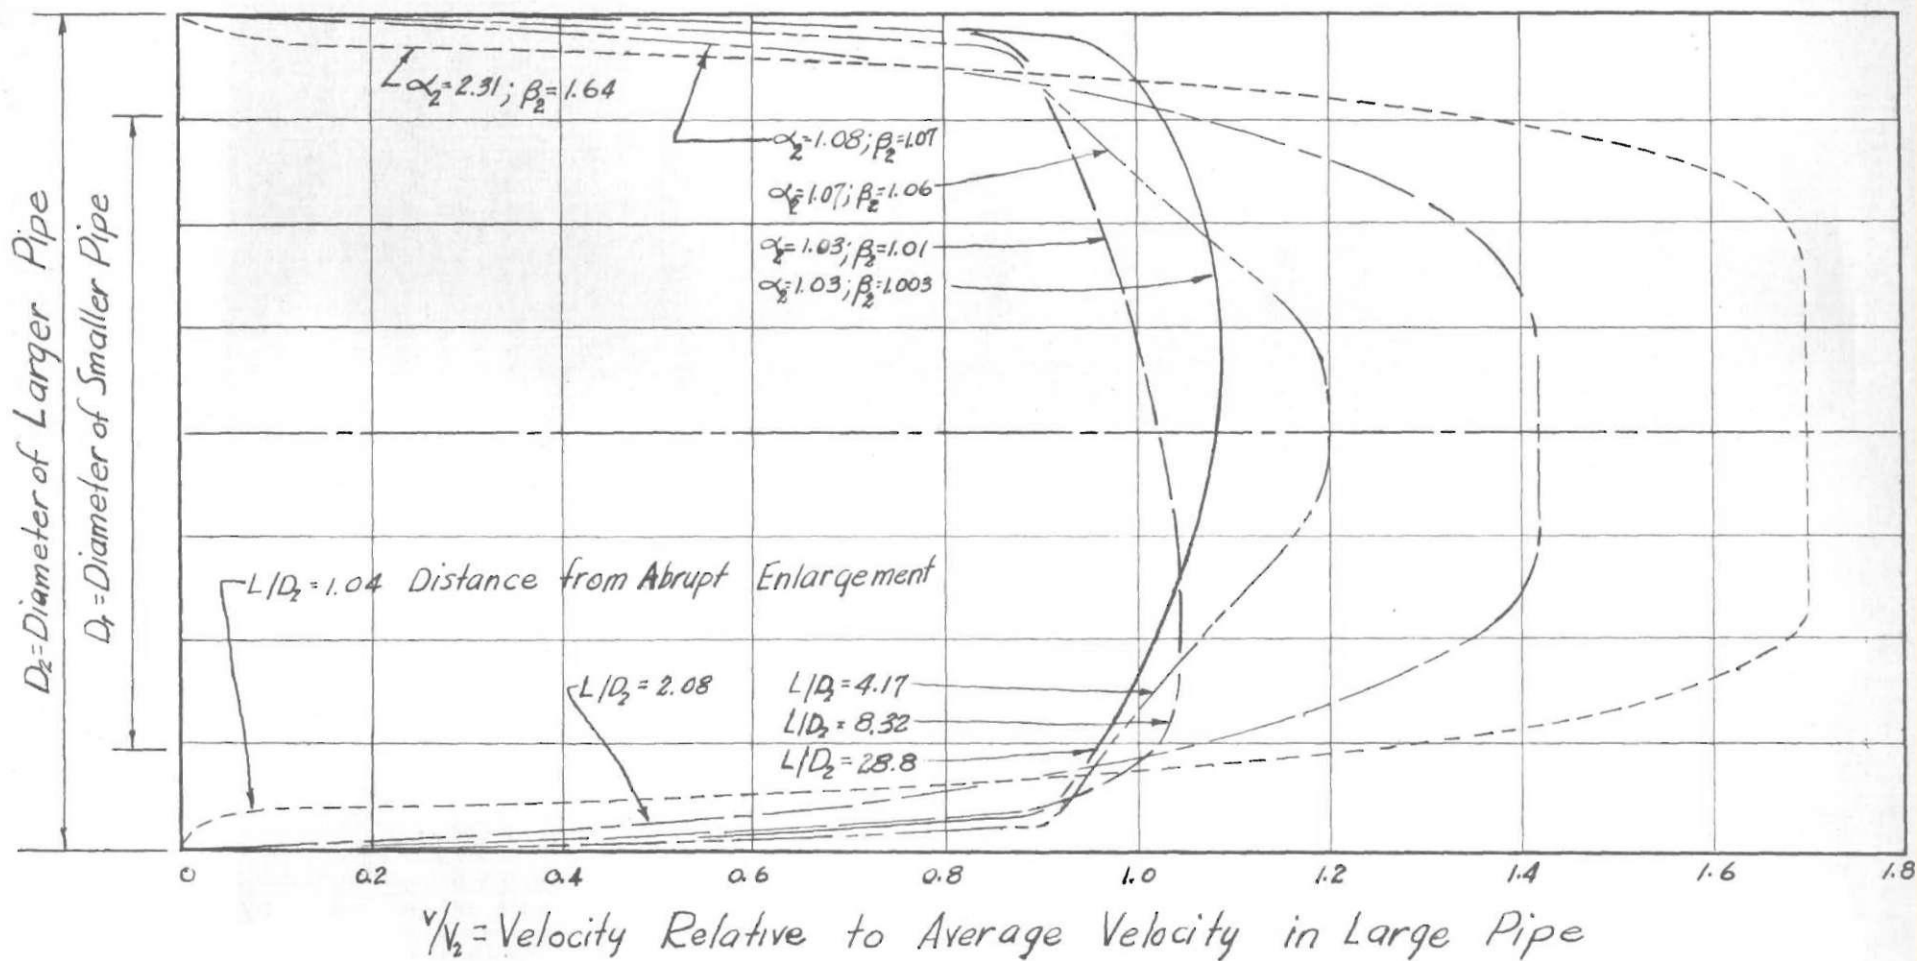 D₂=Diameter of Larger Pipe
D₁=Diameter of Smaller Pipe
α₂=2.31; β₂=1.64
α₂=1.08; β₂=1.07
α₂=1.07; β₂=1.06
α₂=1.03; β₂=1.01
α₂=1.03; β₂=1.003
L/D₂=1.04 Distance from Abrupt Enlargement
L/D₂=2.08
L/D₂=4.17
L/D₂=8.32
L/D₂=28.8
0 0.2 0.4 0.6 0.8 1.0 1.2 1.4 1.6 1.8
v/V₂=Velocity Relative to Average Velocity in Large Pipe